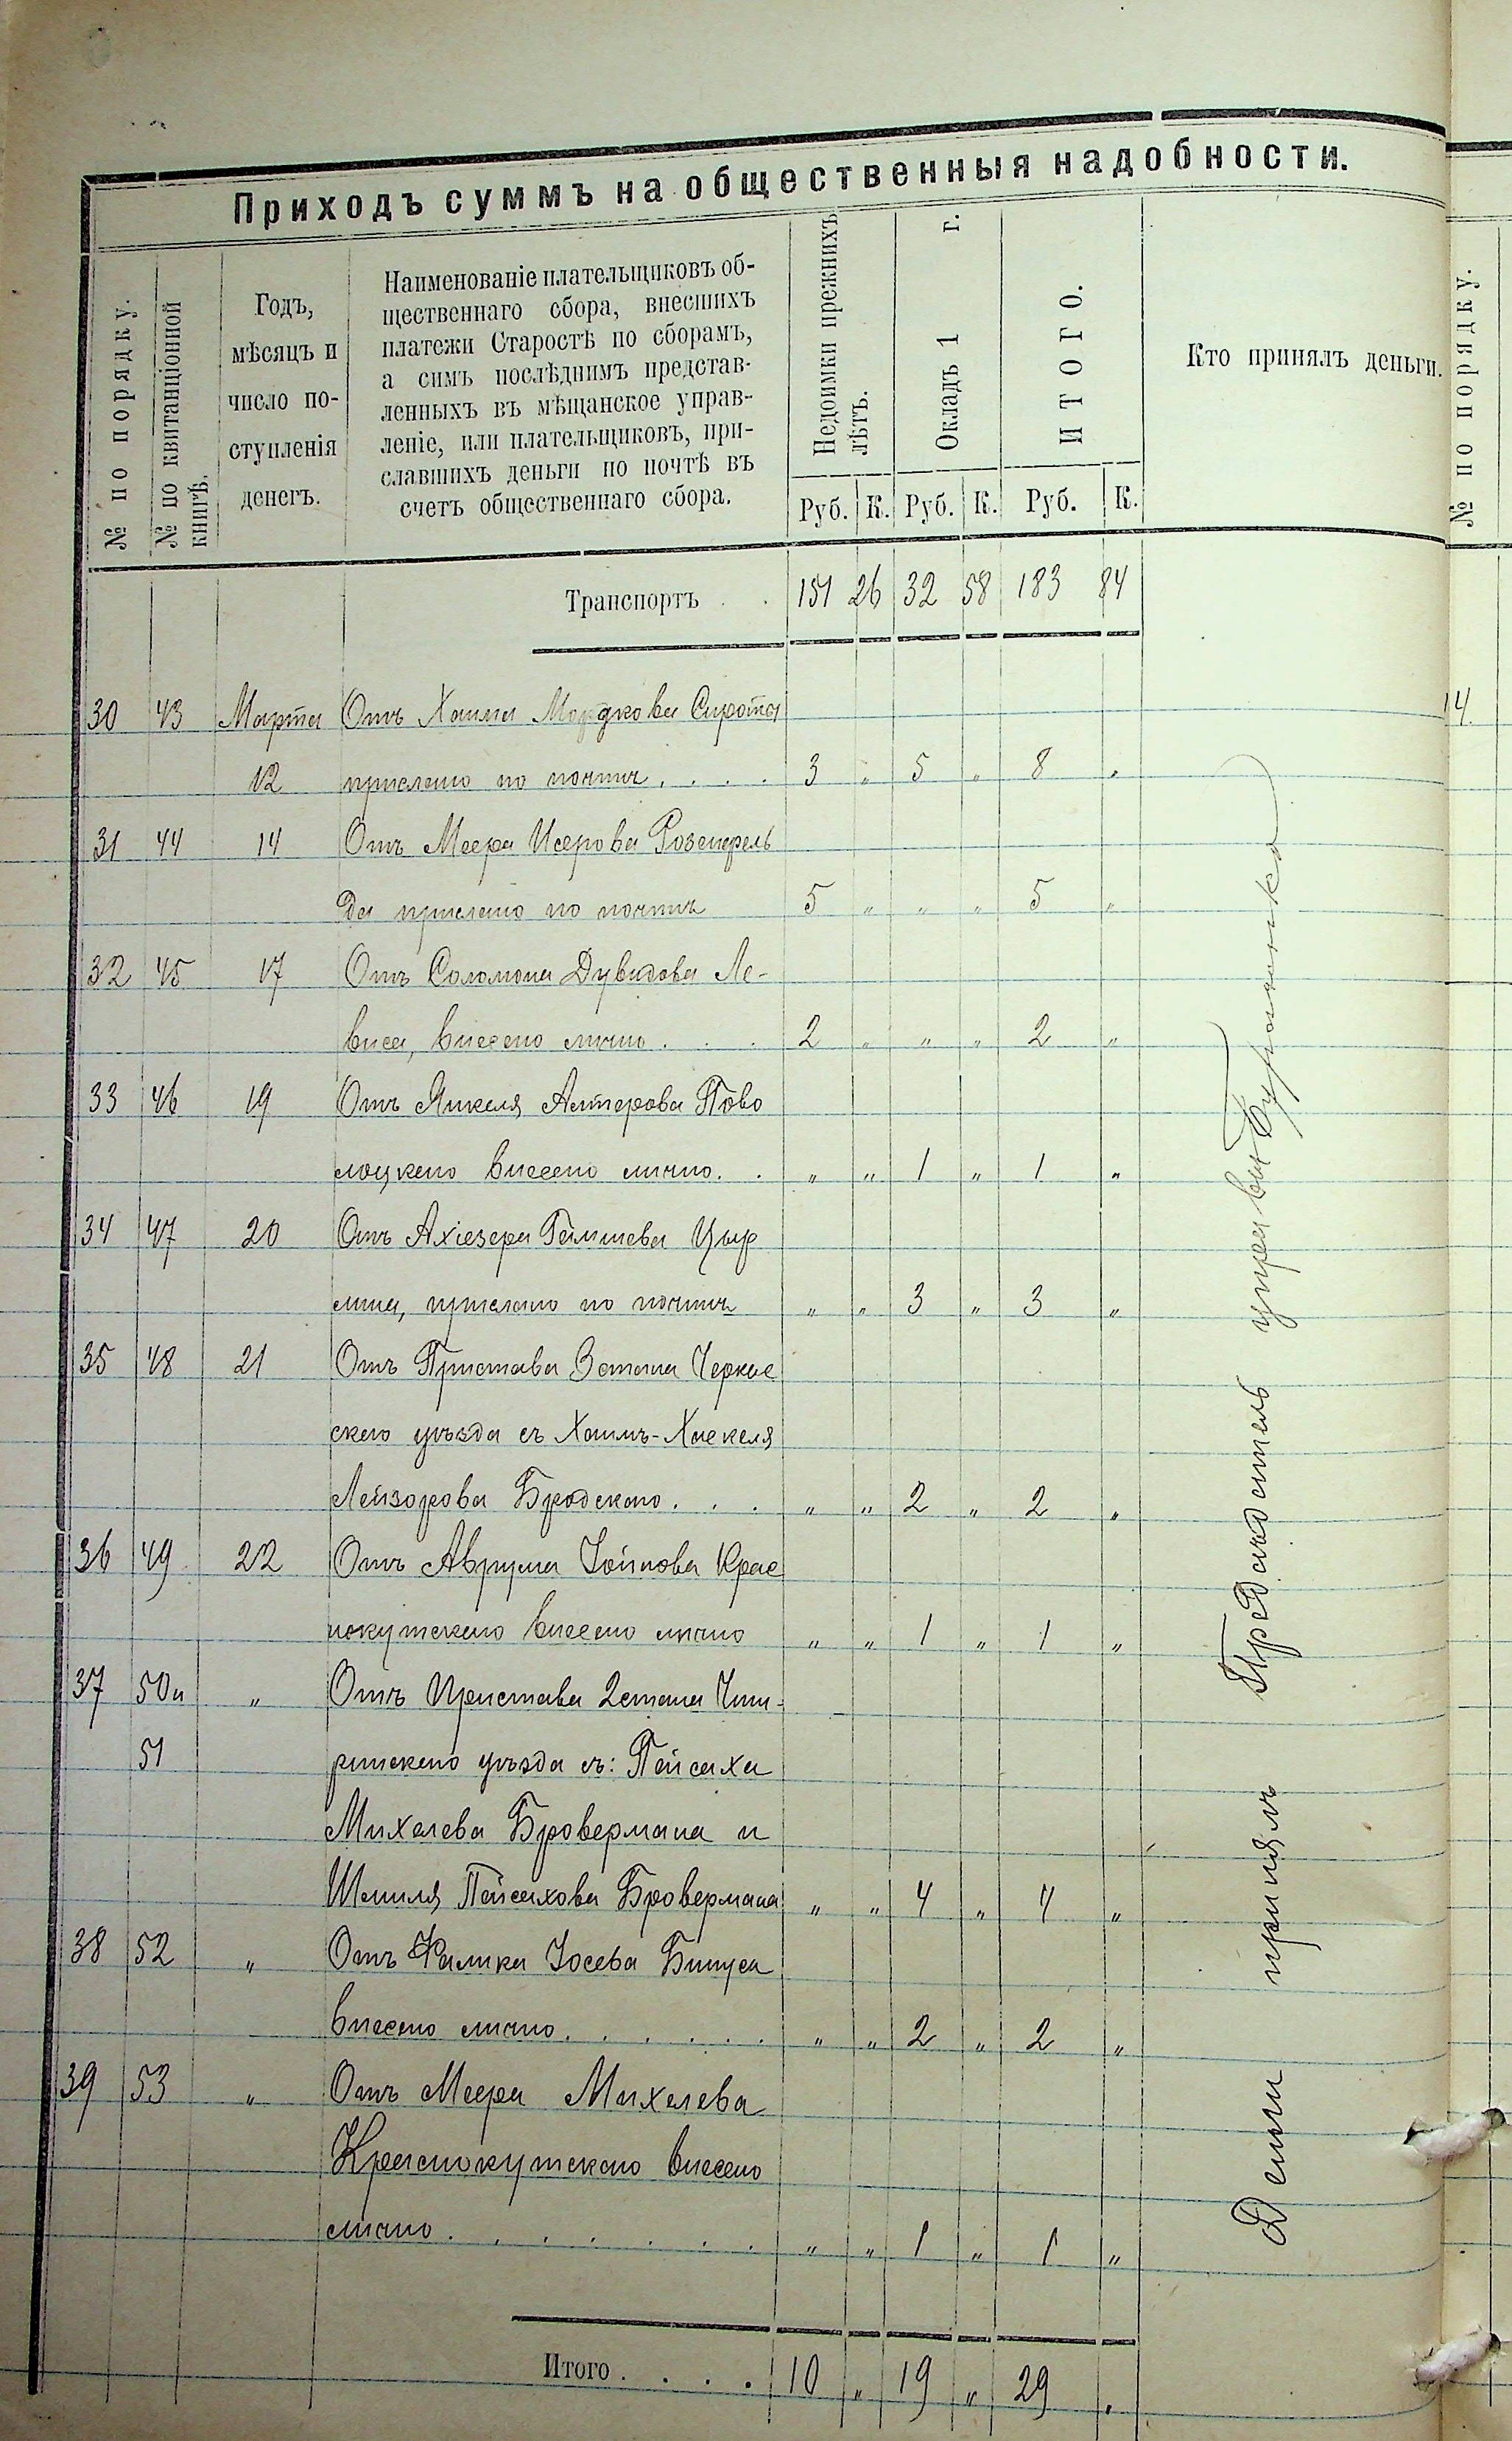 Приходъ суммъ на общественныя надобности.
№ по порядку.
№ по квитанціонной
книгѣ.
Годъ,
мѣсяцъ и
число по-
ступленія
денегъ.
Наименованіе плательщиковъ об-
щественнаго сбора, внесшихъ
платежи Старостѣ по сборамъ,
а симъ послѣднимъ представ-
ленныхъ въ мѣщанское управ-
леніе, или плательщиковъ, при-
славшихъ деньги по почтѣ въ
счетъ общественнаго сбора.
Недоимки прежнихъ
лѣтъ.
Окладъ 1 г.
ИТОГО.
Руб. К. Руб. К. Руб. К.
Кто принялъ деньги.
№ по порядку.
Транспортъ . . 151 26 32 58 183 84
30 43 Марта Отъ Хаима Мордкова Сирота
14
12 прислано по почтѣ . . . . 3 „ 5 „ 8 „
31 44 14 Отъ Меера Исерова Розенфель
да прислано по почтѣ 5 „ „ „ 5 „
32 45 17 Отъ Соломона Дувидова Ле-
виса, внесено лично . . . 2 „ „ „ 2 „
33 46 19 Отъ Янкеля Алтерова Пово
лоцкаго внесено лично . . „ „ 1 „ 1 „
34 47 20 Отъ Ахіезера Гимшева Цыр
лина, прислано по почтѣ „ „ 3 „ 3 „
35 48 21 Отъ Пристава 3 стана Черкас
скаго уѣзда съ Хаимъ-Хаскеля
Лейзорова Бродскаго . . . „ „ 2 „ 2 „
36 49 22 Отъ Аврума Іойнова Крас
нокутскаго внесено лично „ „ 1 „ 1 „
37 50 и „ Отъ Пристава 2 стана Чиги-
51 ринскаго уѣзда съ: Пейсаха
Михелева Бровермана и
Шмиля Пейсахова Бровермана „ „ 4 „ 4 „
38 52 „ Отъ Фалика Іосева Бинуса
внесено лично . . . . . . „ „ 2 „ 2 „
39 53 „ Отъ Меера Михелева
Краснокутскаго внесено
лично . . . . . . . „ „ 1 „ 1 „
Итого . . . . 10 „ 19 „ 29 „
Деньги принялъ Предсѣдатель управы